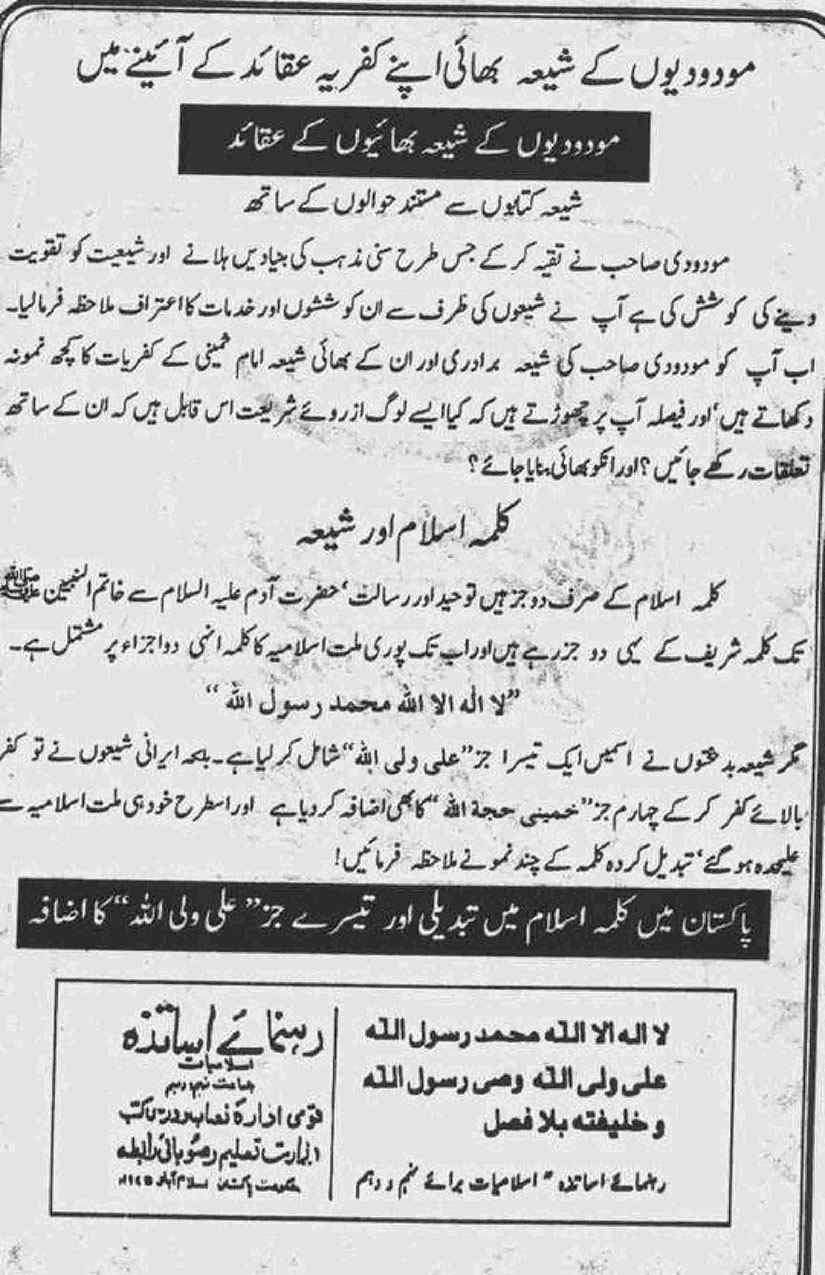 مودودیوں کے شیعہ بھائی اپنے کفریہ عقائد کے آئینے میں
مودودیوں کے شیعہ بھائیوں کے عقائد
شیعہ کتابوں سے مستند حوالوں کے ساتھ
مودودی صاحب نے تقیہ کر کے جس طرح سنی مذہب کی بنیادیں ہلانے اور شیعیت کو تقویت
دینے کی کوشش کی ہے آپ نے شیعوں کی طرف سے ان کوششوں اور خدمات کا اعتراف ملاحظہ فرمالیا۔
اب آپ کو مودودی صاحب کی شیعہ برادری اور ان کے بھائی شیعہ امام خمینی کے کفریات کا کچھ نمونہ
دکھاتے ہیں‘ اور فیصلہ آپ پر چھوڑتے ہیں کہ کیا ایسے لوگ از روئے شریعت اس قابل ہیں کہ ان کے ساتھ
تعلقات رکھے جائیں؟ اور انکو بھائی بنایا جائے؟
کلمہ اسلام اور شیعہ
کلمہ اسلام کے صرف دو جز ہیں توحید اور رسالت‘ حضرت آدم علیہ السلام سے خاتم النبیین ﷺ
تک کلمہ شریف کے یہی دو جز رہے ہیں اور اب تک پوری ملت اسلامیہ کا کلمہ انہی دو اجزاء پر مشتمل ہے۔
”لا الہ الا اللہ محمد رسول اللہ“
مگر شیعہ بدعتوں نے اسمیں ایک تیسرا جز ”علی ولی اللہ“ شامل کر لیا ہے۔ بلحہ ایرانی شیعوں نے تو کفر
بالائے کفر کر کے چہارم جز ”خمینی حجة اللہ“ کا بھی اضافہ کر دیا ہے اور اسطرح خود ہی ملت اسلامیہ سے
علیحدہ ہو گئے‘ تبدیل کردہ کلمہ کے چند نمونے ملاحظہ فرمائیں!
پاکستان میں کلمہ اسلام میں تبدیلی اور تیسرے جز ”علی ولی اللہ“ کا اضافہ
لا الہ الا اللہ محمد رسول اللہ
علی ولی اللہ وصی رسول اللہ
و خلیفتہ بلا فصل
رہنمائے اساتذہ اسلامیات برائے نہم و دہم
رہنمائے اساتذہ
اسلامیات
جماعت نہم دہم
قومی ادارہ نصاب و درسی کتب
وزارت تعلیم و صوبائی رابطہ
حکومت پاکستان اسلام آباد